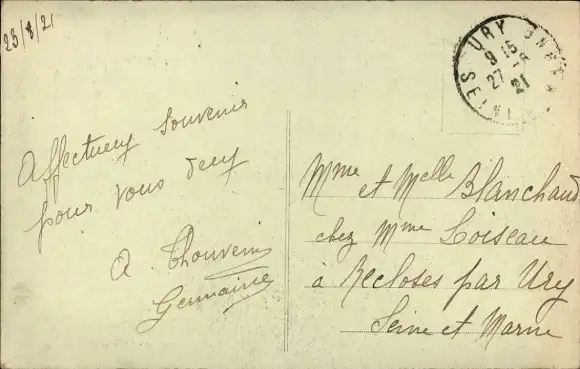 23/8/21
URY SEINE
9 15
27 -8
21
Affectueux Souvenir
pour vous deux
A Thouvenin
Germaine
Mme et Melle Blanchaud
chez Mme Loiseau
à Recloses par Ury
Seine et Marne